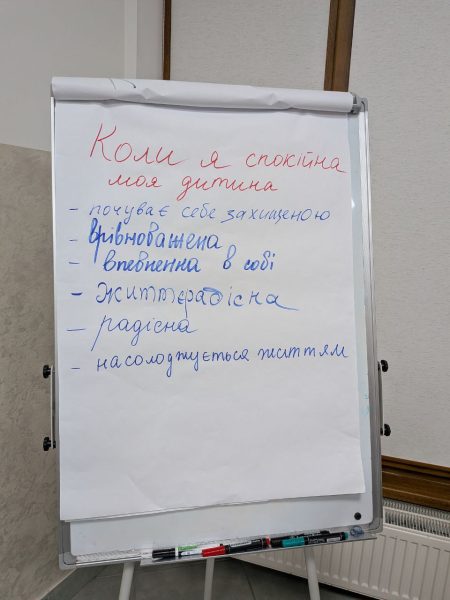 Коли я спокійна
моя дитина
- почуває себе захищеною
- врівноважена
- впевненна в собі
- життєрадісна
- радісна
- насолоджується життям